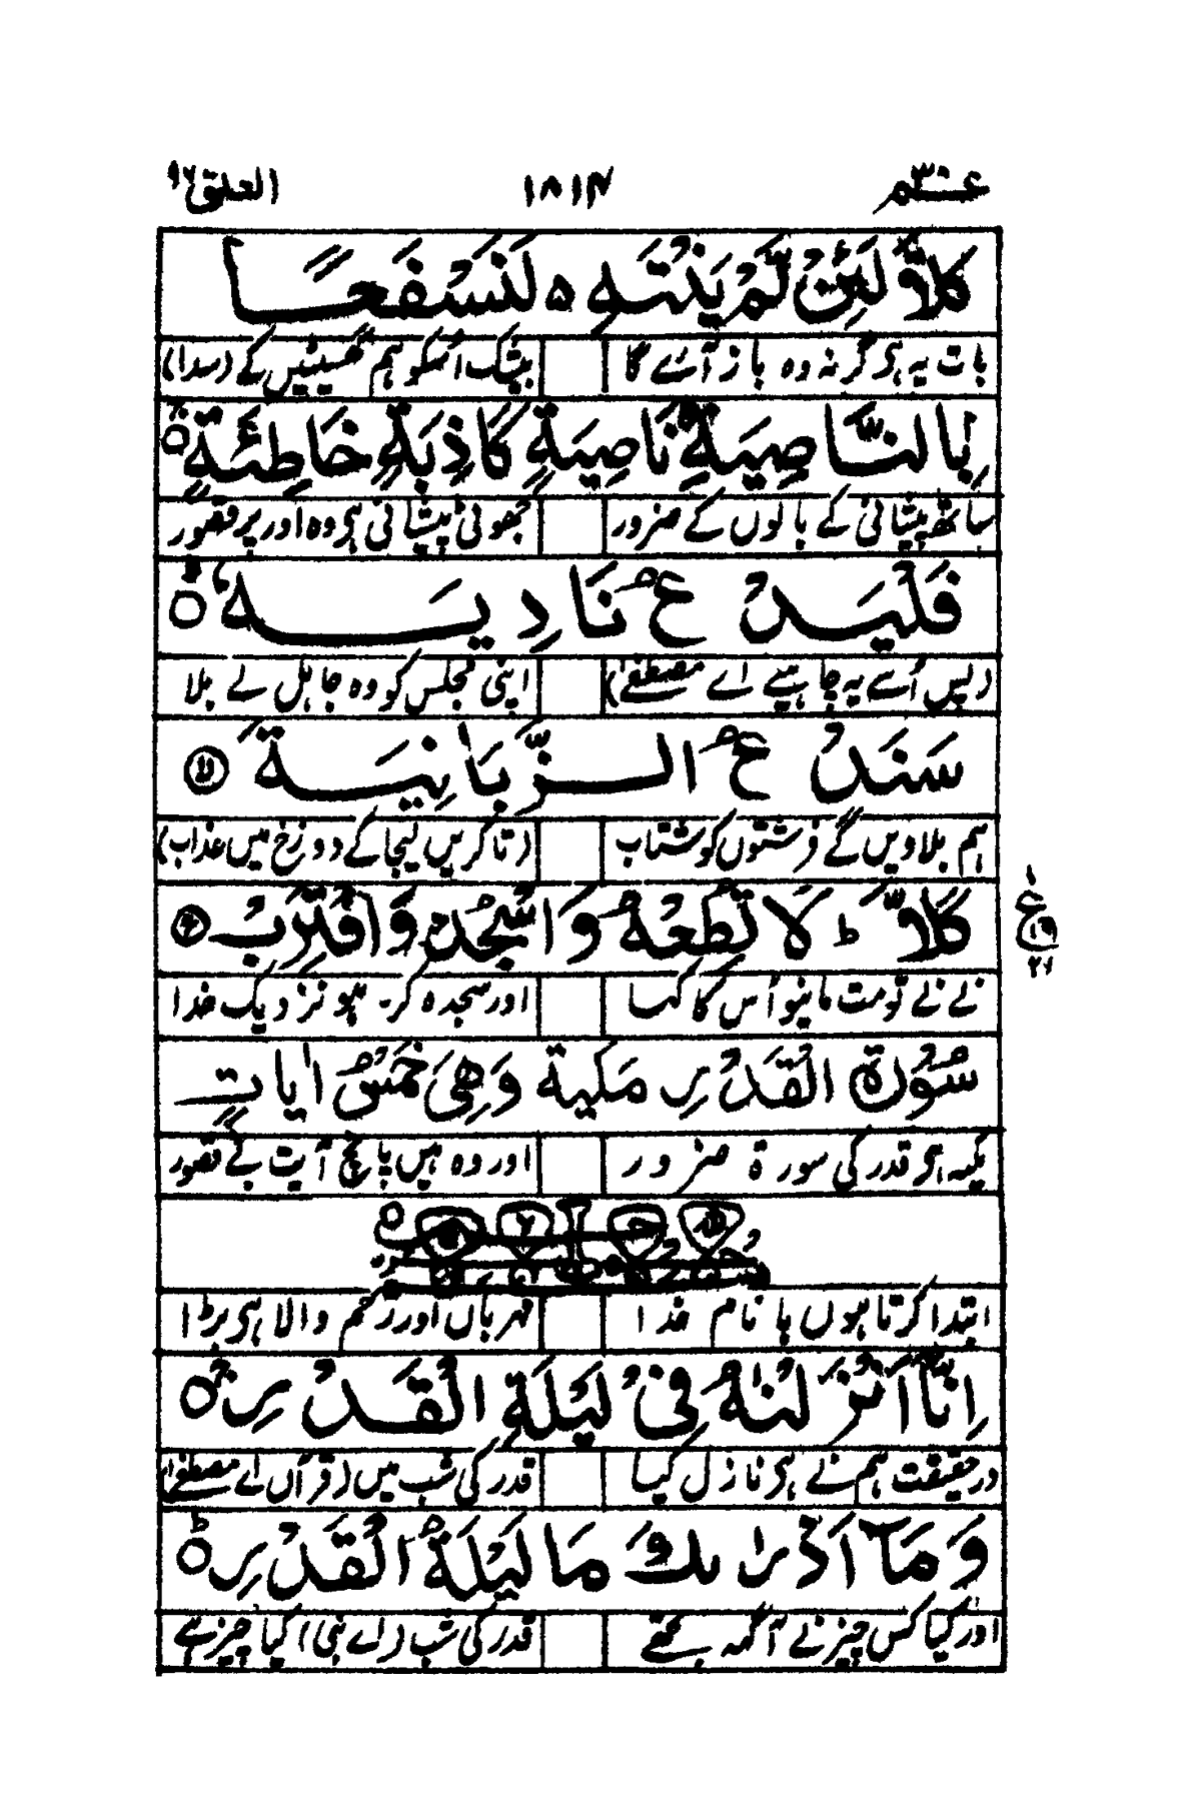 عم ٣٠ ١٨١٤ العلق ٩٦
كَلَّا لَئِنْ لَّمْ يَنْتَهِ ۵ لَنَسْفَعًا
بات یہ ہی گر نہ وہ باز آئے گا بیشک اسکو ہم گھسیٹیں گے (سدا)
بِالنَّاصِيَةِ نَاصِيَةٍ كَاذِبَةٍ خَاطِئَةٍ
ساتھ پیشانی کے بالوں کے ضرور جھوٹی پیشانی ہی وہ اور پر قصور
فَلْيَدْعُ نَادِيَهُ
(پس اُسے یہ چاہیے اے مصطفےٰ) اپنی مجلس کو وہ جاہل لے بلا
سَنَدْعُ الزَّبَانِيَةَ
ہم بلاویں گے فرشتوں کو شتاب (تا کریں لیجا کے دوزخ میں عذاب)
كَلَّا ط لَا تُطِعْهُ وَاسْجُدْ وَاقْتَرِبْ
نے نے تو مت مانیو اُس کا کہا اور سجدہ کر۔ ہو نزدیک خدا
ع ١ ١٩ ٢١
سُوْرَةُ الْقَدْرِ مَكِّيَةٌ وَهِیَ خَمْسُ اٰيَاتٍ
مکیہ ہی قدر کی سورۃ ضرور اور وہ ہیں پانچ آیت بے قصور
ابتدا کرتا ہوں با نام خدا مہرباں اور رحم والا ہی بڑا
اِنَّا اَنْزَلْنٰهُ فِیْ لَيْلَةِ الْقَدْرِ
در حقیقت ہم نے ہی نازل کیا قدر کی شب میں (قرآں اے مصطفےٰ)
وَمَا اَدْرٰىكَ مَا لَيْلَةُ الْقَدْرِ
اور کیا کس چیز نے آگہ تجھے قدر کی شب (اے نبی) کیا چیز ہے